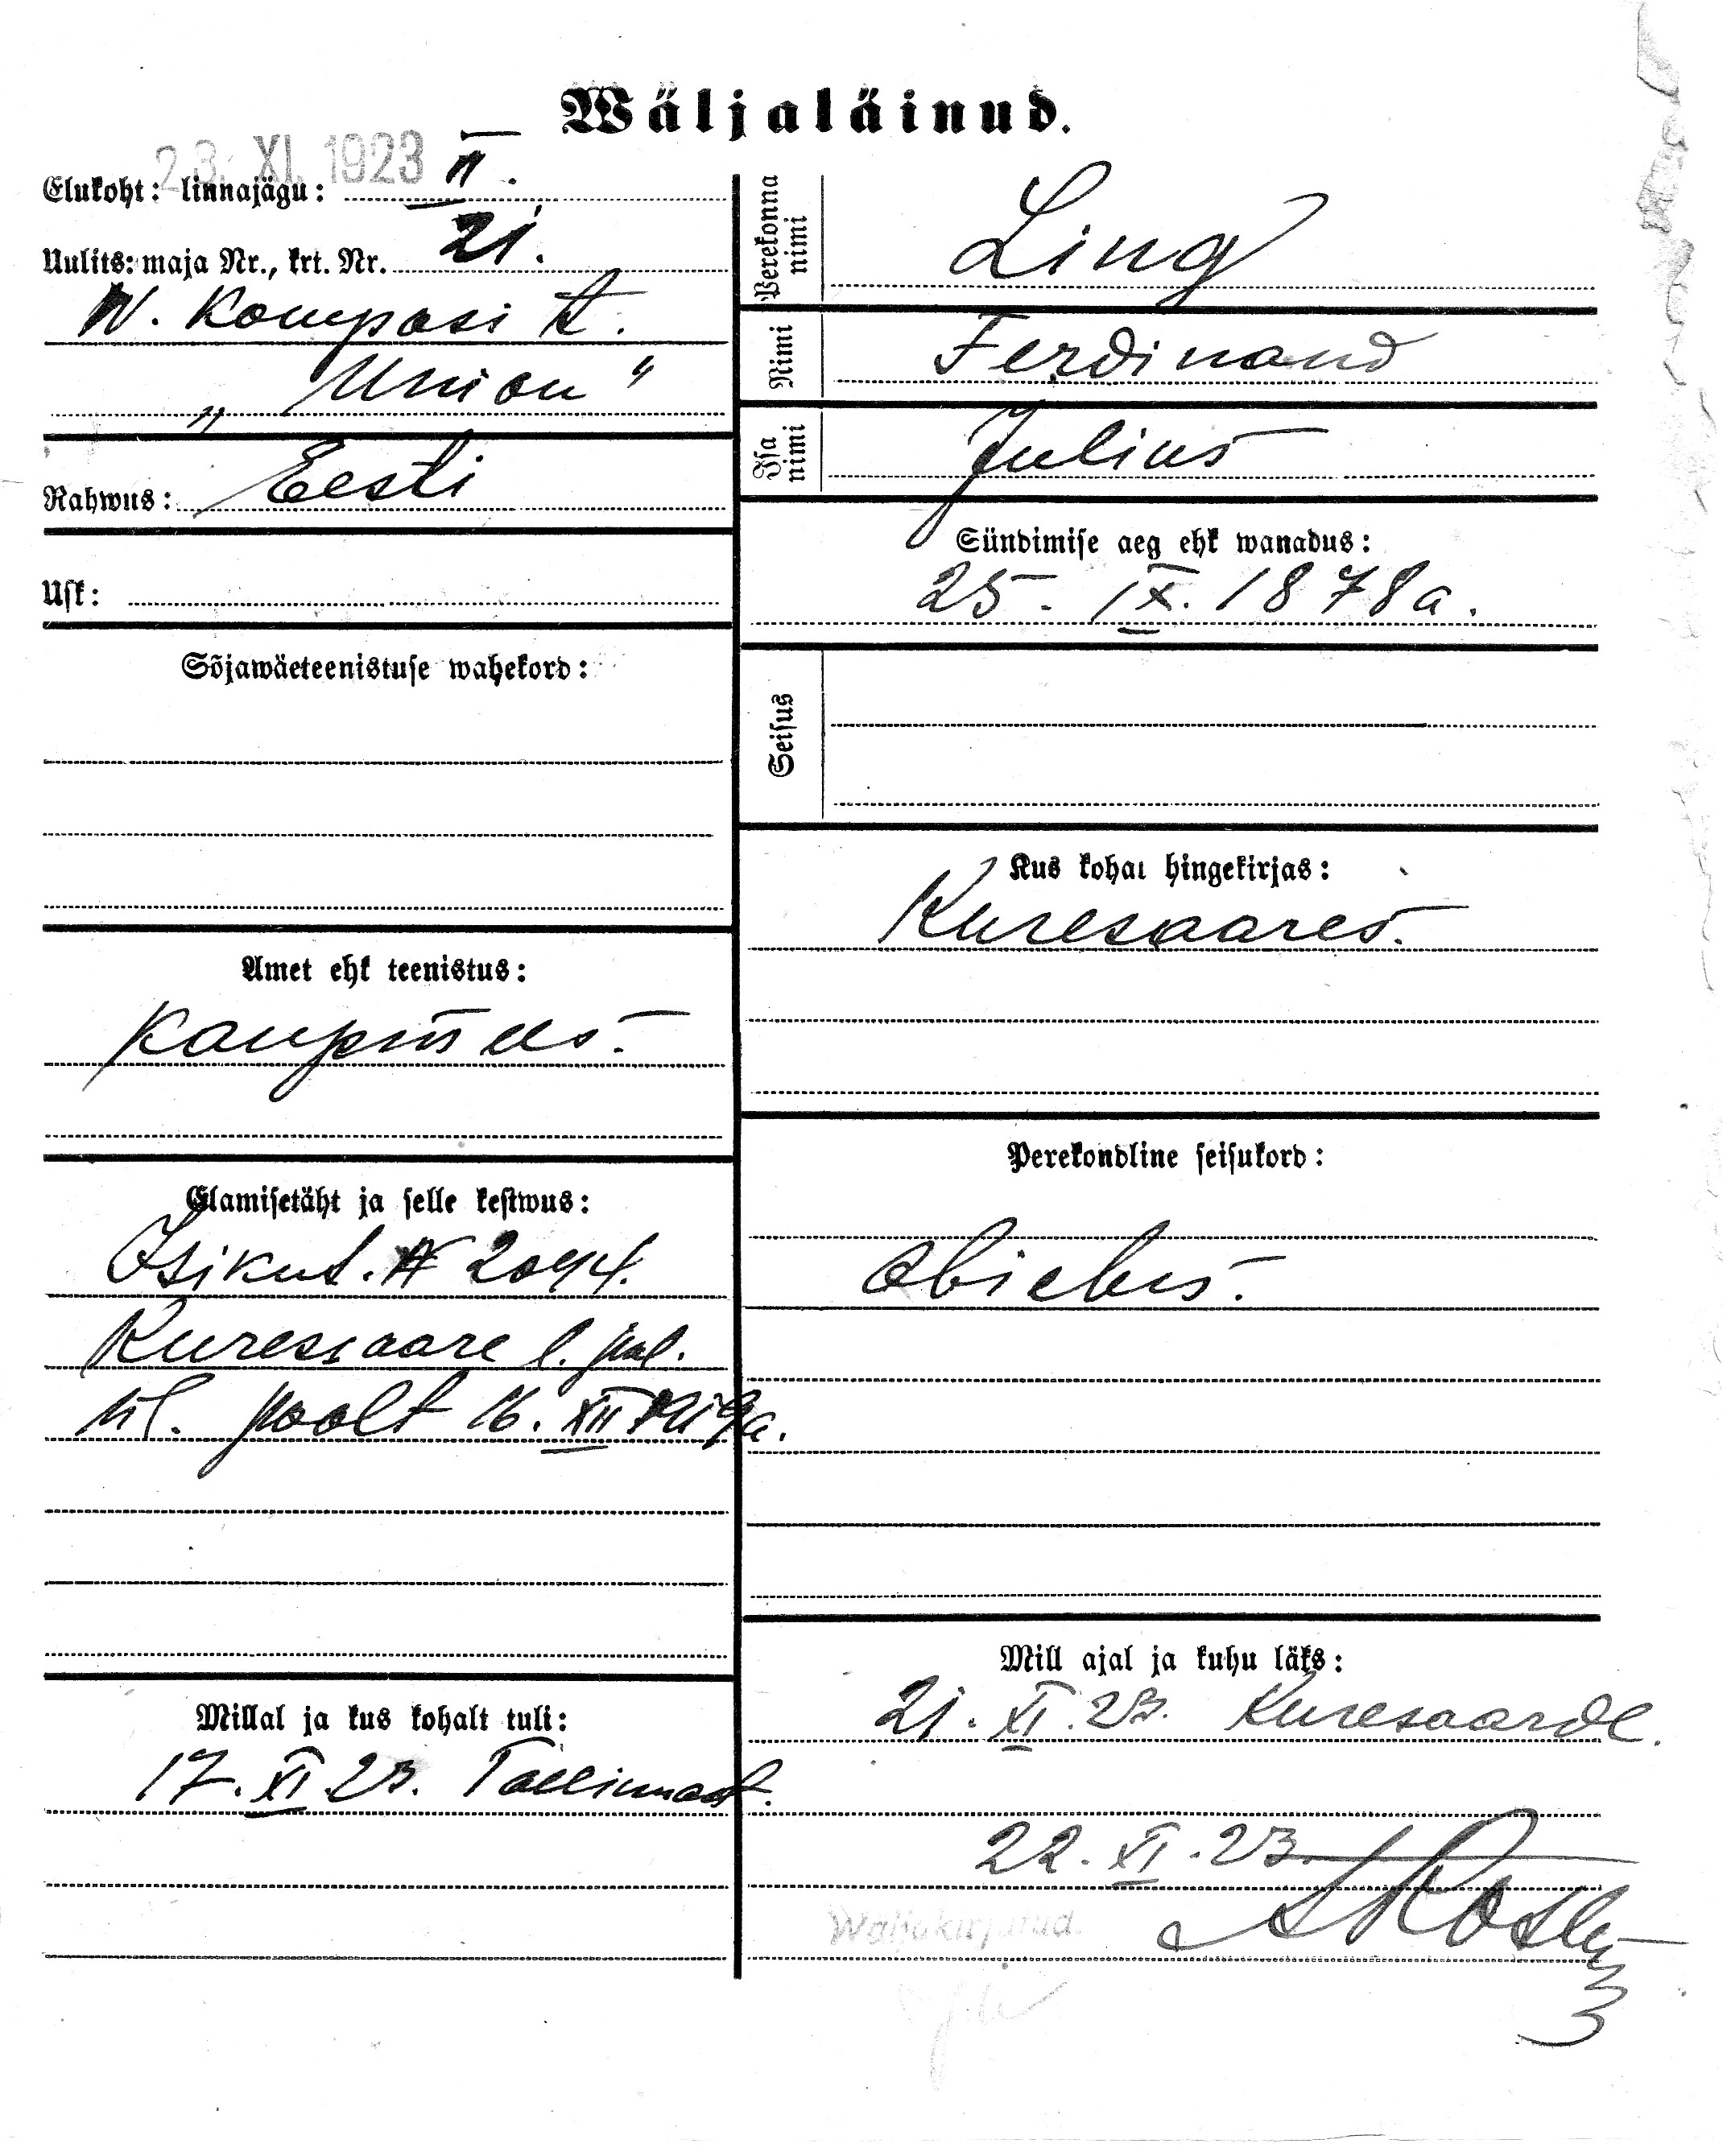 Wäljaläinud.
23. XI. 1923
Elukoht: linnajägu: II.
Uulits: maja Nr., krt. Nr. 21.
W. Kompasi t.
„Union"
Rahwus: Eesti
Usk:
Sõjawäeteenistuse wahekord:
Amet ehk teenistus:
Kaupmees.
Elamisetäht ja selle kestwus:
Isikut. № 2094.
Kuressaare l. pol.
ül. poolt 16. XII 1919a.
Millal ja kus kohalt tuli:
17. XI 23. Tallinnast.
Perekonna nimi
Ling
Nimi
Ferdinand
Isa nimi
Julius
Sündimise aeg ehk wanadus:
25. IX. 1878a.
Seisus
Kus kohal hingekirjas:
Kuresaares.
Perekondline seisukord:
abielus.
Mill ajal ja kuhu läks:
21. XI. 23. Kuresaarde.
22. XI. 23.
Waljakirjutud.